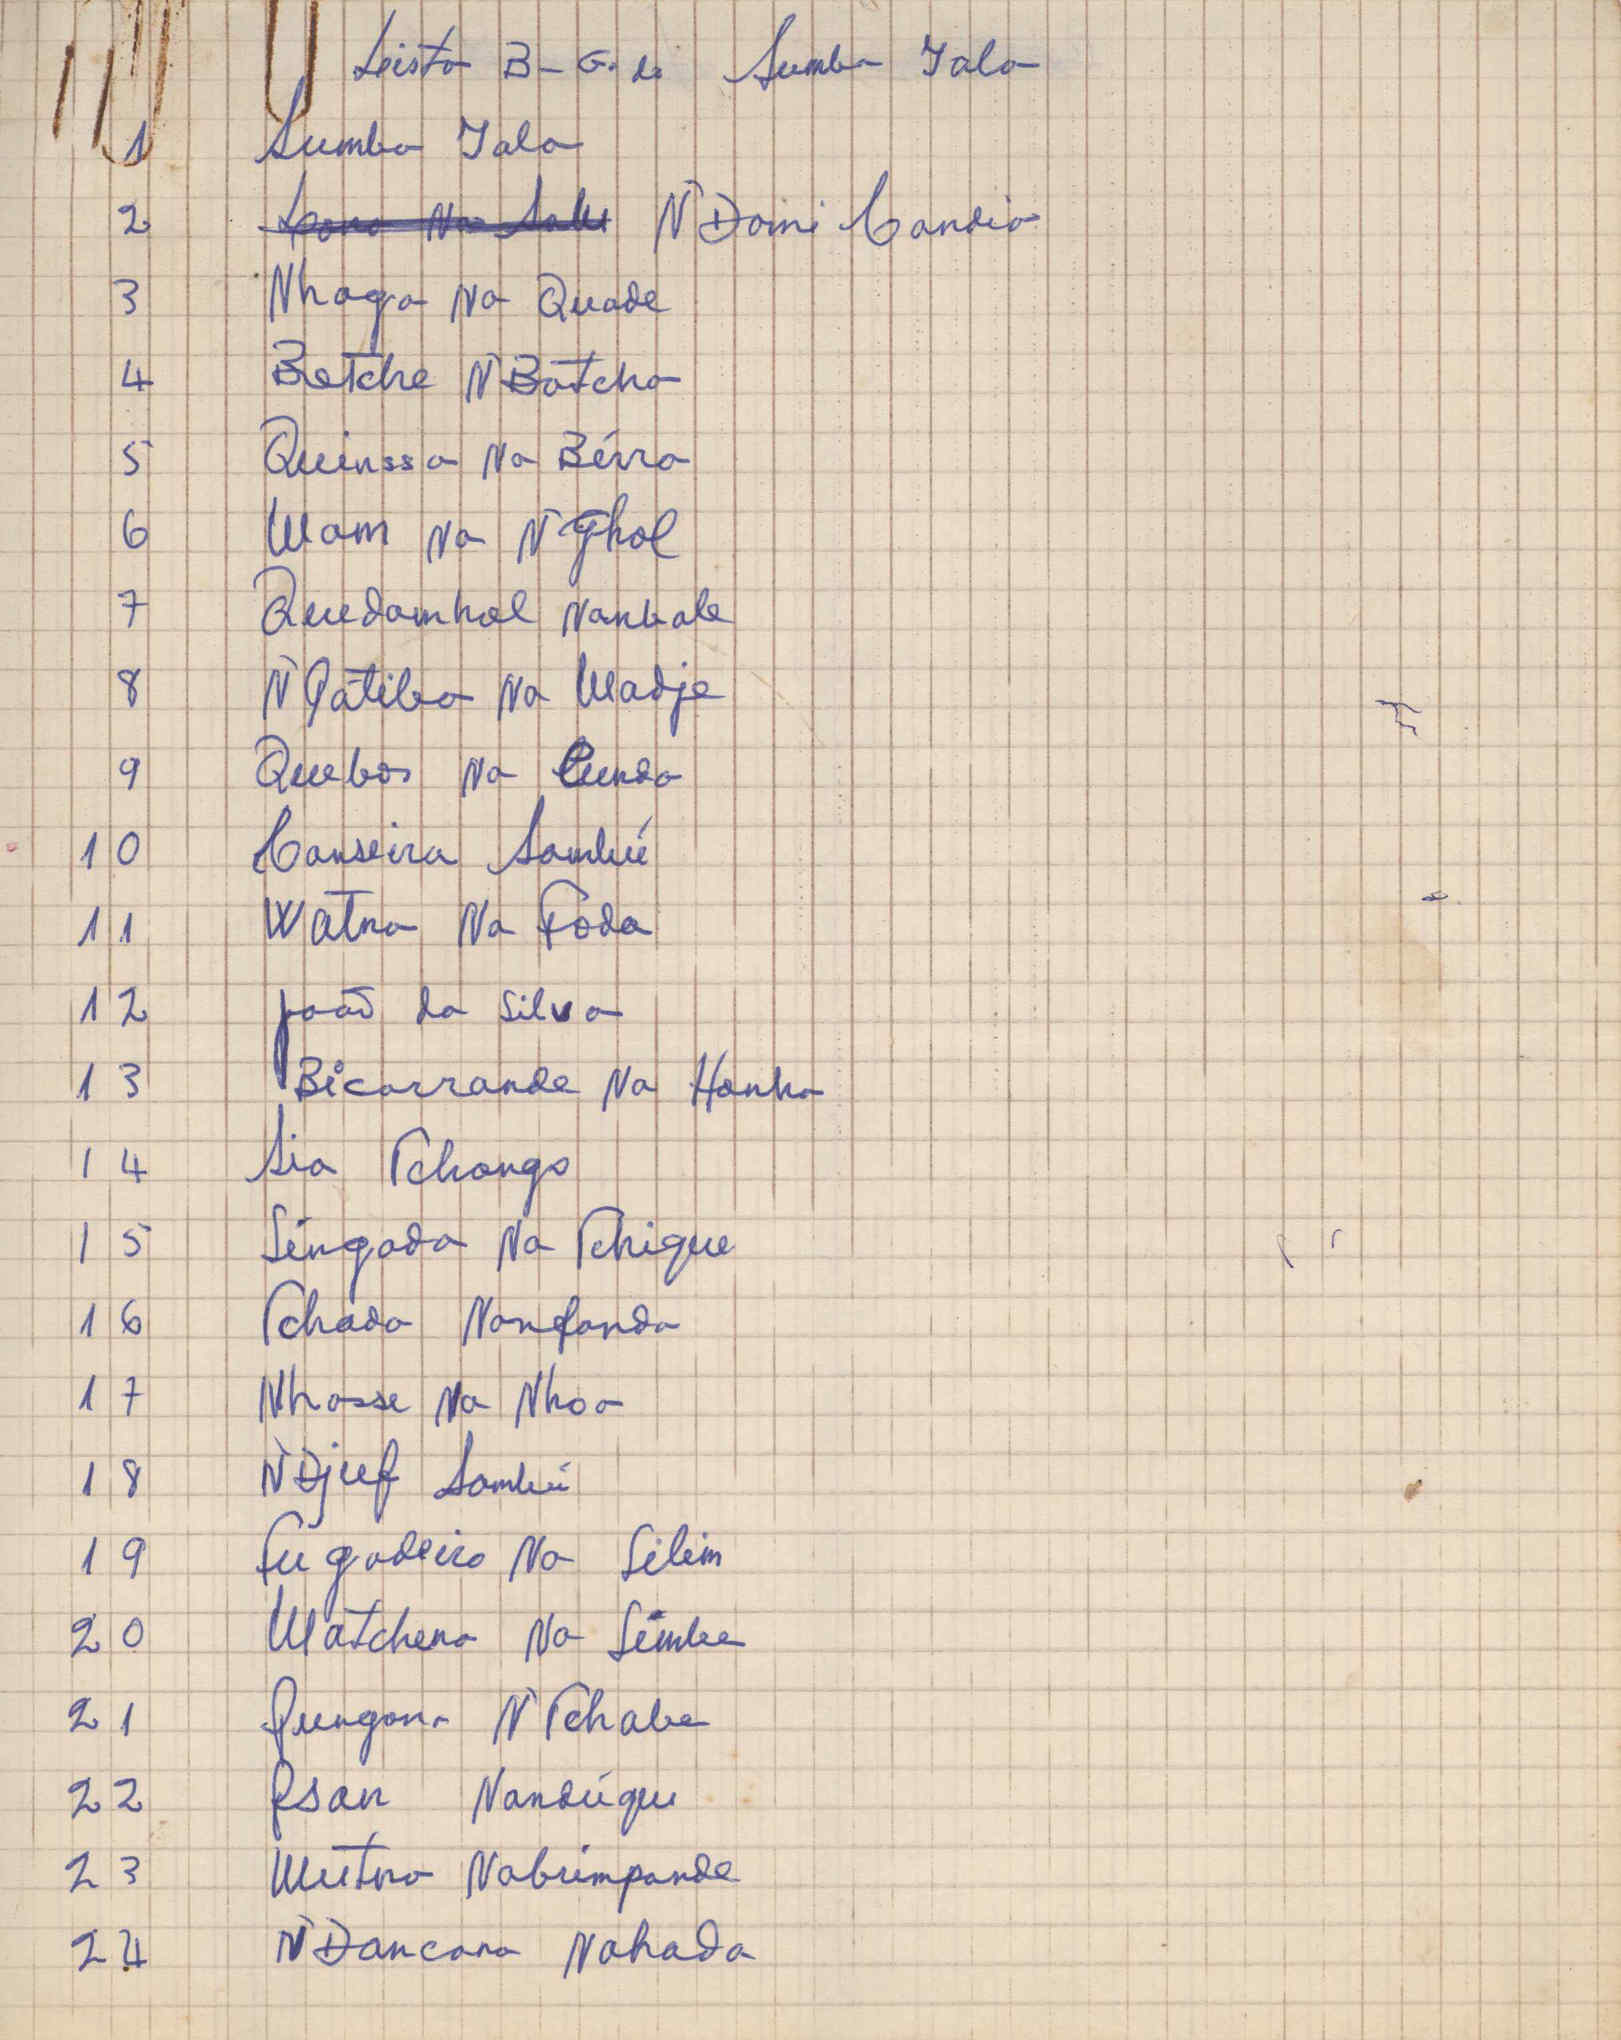 Leista B-G. do Sumba Iala
1 Sumba Iala
2 N'Domi Candia
3 Nhaga Na Quade
4 Betche N'Batcha
5 Quinssa Na Bérra
6 Wam Na N'Thol
7 Quedamhal Nanbale
8 N'Patiba Na Wadje
9 Quebos Na Cunda
10 Canseira Sambú
11 Watna Na Foda
12 João da Silva
13 Bicarrande Na Hanha
14 Sia Tchongo
15 Singada Na Tchigue
16 Tchada Nanfanda
17 Nhasse Na Nhoa
18 N'Djuf Sambú
19 Fugadeiro Na Silim
20 Watchena Na Simbe
21 Qungana N'Tchabe
22 Psan Nandúgue
23 Wutna Nabrimpande
24 N'Dancana Nahada